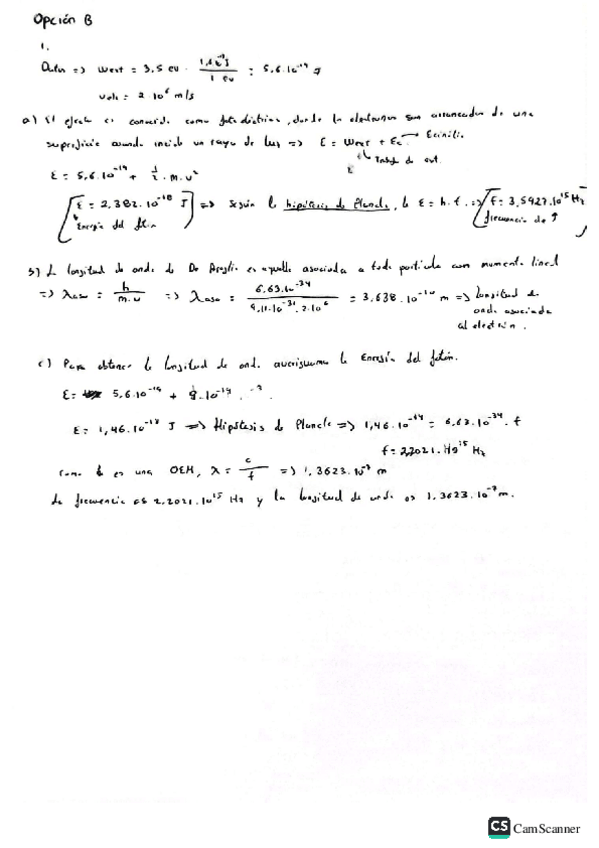 Opción B
1.
Datos => Wext = 3,5 eV · 1,6·10⁻¹⁹ J / 1 eV = 5,6·10⁻¹⁹ J
velo = 2·10⁶ m/s
a) El efecto es conocido como fotoeléctrico, donde los electrones son arrancados de una
superficie cuando incide un rayo de luz => E = Wext + Ec → E cinética
Trabajo de ext.
E = 5,6·10⁻¹⁹ + 1/2 · m · v²
[E = 2,382·10⁻¹⁸ J] => Según la hipótesis de Planck, la E = h · f => [f = 3,5927·10¹⁵ Hz
Energía del fotón
frecuencia de
b) La longitud de onda de De Broglie es aquella asociada a toda partícula con momento lineal
=> λaso = h / m·v => λaso = 6,63·10⁻³⁴ / 9,11·10⁻³¹ · 2·10⁶ = 3,638·10⁻¹⁰ m => longitud de
onda asociada
al electrón.
c) Para obtener la longitud de onda averiguamos la Energía del fotón.
E = 5,6·10⁻¹⁹ + 9·10⁻¹⁹
E = 1,46·10⁻¹⁸ J => Hipótesis de Planck => 1,46·10⁻¹⁸ = 6,63·10⁻³⁴ · f
f = 2,2021·10¹⁵ Hz
Como es una OEM, λ = c / f => 1,3623·10⁻⁷ m
La frecuencia es 2,2021·10¹⁵ Hz y la longitud de onda es 1,3623·10⁻⁷ m.
CS CamScanner